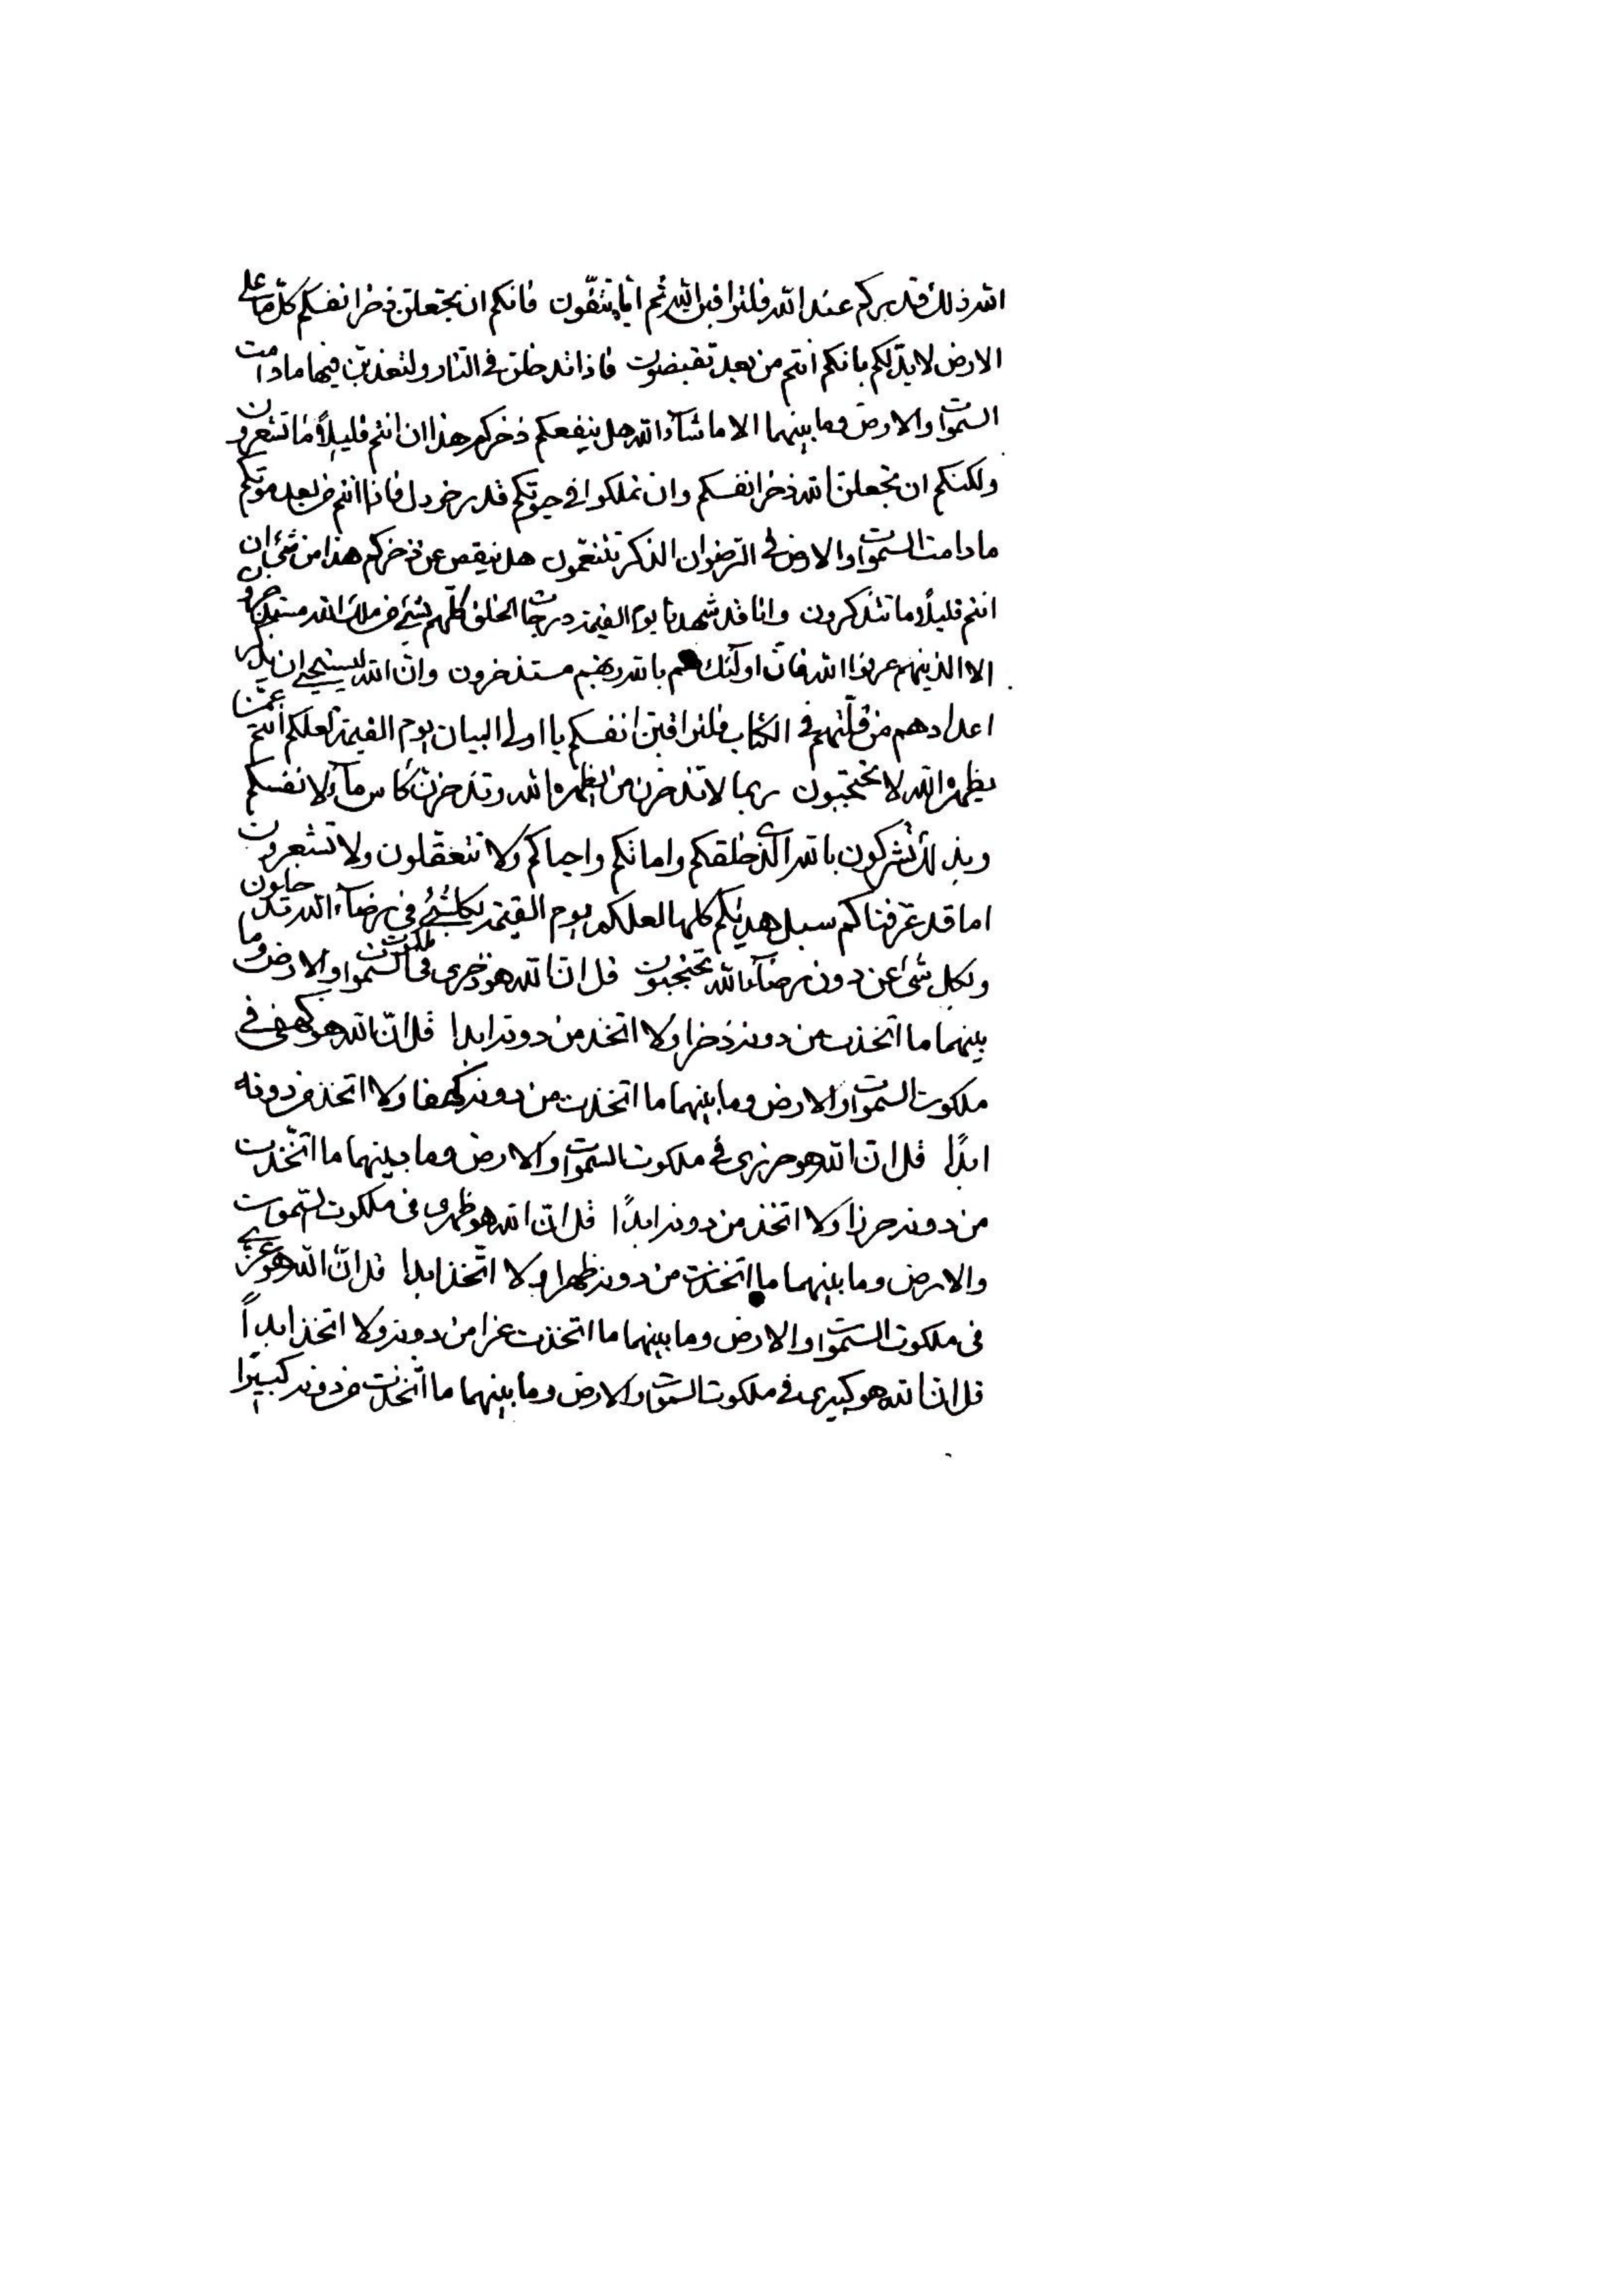 الله ذلك قدركم عند الله فلتراقبن الله ثم اياه تتقون فانكم ان تجعلن ذخر انفسكم كل ما على
الارض لا بد لكم بانكم انتم من بعد تقبضون فاذا تدخلن في النار ولتعذبن فيها ما دامت
السموات والارض وما بينهما الا ما شآء الله هل ينفعكم ذخركم هذا ان انتم قليلاً ما تشعرون
ولكنكم ان تجعلن الله ذخر انفسكم وان تملكوا في حيوتكم قدر خردل فاذا انتم من بعد موتكم
ما دامت السموات والارض في الرضوان الذكر تتنعمون هل ينقص عن ذخركم هذا من شئ ان
انتم قليلاً ما تتذكرون وانا قد شهدنا يوم القيمة درجات الخلق كلهم بشئ من ملك الله مستذخرون
الا الذينهم عرفوا الله فان اولئك هم بالله ربهم مستذخرون وان الله ليستحيي ان يذكر
اعدادهم من قلتهم في الكتاب فلتراقبن انفسكم يا اولي البيان يوم القيمة لعلكم انتم عمن
يظهره الله لا تحتجبون ربما لا تذخرن من يظهره الله وتذخرن كأس مآء لانفسكم
وبذلك تشركون بالله الذي خلقكم واماتكم واحياكم ولا تتعقلون ولا تشعرون
اما قد عرفناكم سبل هديكم كلها لعلكم يوم القيمة بكلشئ في رضآء الله تدخلون
ولكل شئ عن دون رضآء الله تحتجبون قل ان الله هو ذخري في ملكوت السموات والارض وما
بينهما ما اتخذت من دونه ذخرا ولا اتخذ من دونه ابدا قل ان الله هو كهفي في
ملكوت السموات والارض وما بينهما ما اتخذت من دونه كهفا ولا اتخذ من دونه
ابدًا قل ان الله هو حرزي في ملكوت السموات والارض وما بينهما ما اتخذت
من دونه حرزا ولا اتخذ من دونه ابدًا قل ان الله هو ظهري في ملكوت السموات
والارض وما بينهما ما اتخذت من دونه ظهرا ولا اتخذ ابدا قل ان الله هو عزي
في ملكوت السموات والارض وما بينهما ما اتخذت عزا من دونه ولا اتخذ ابداً
قل ان الله هو كبيري في ملكوت السموات والارض وما بينهما ما اتخذت من دونه كبيرًا